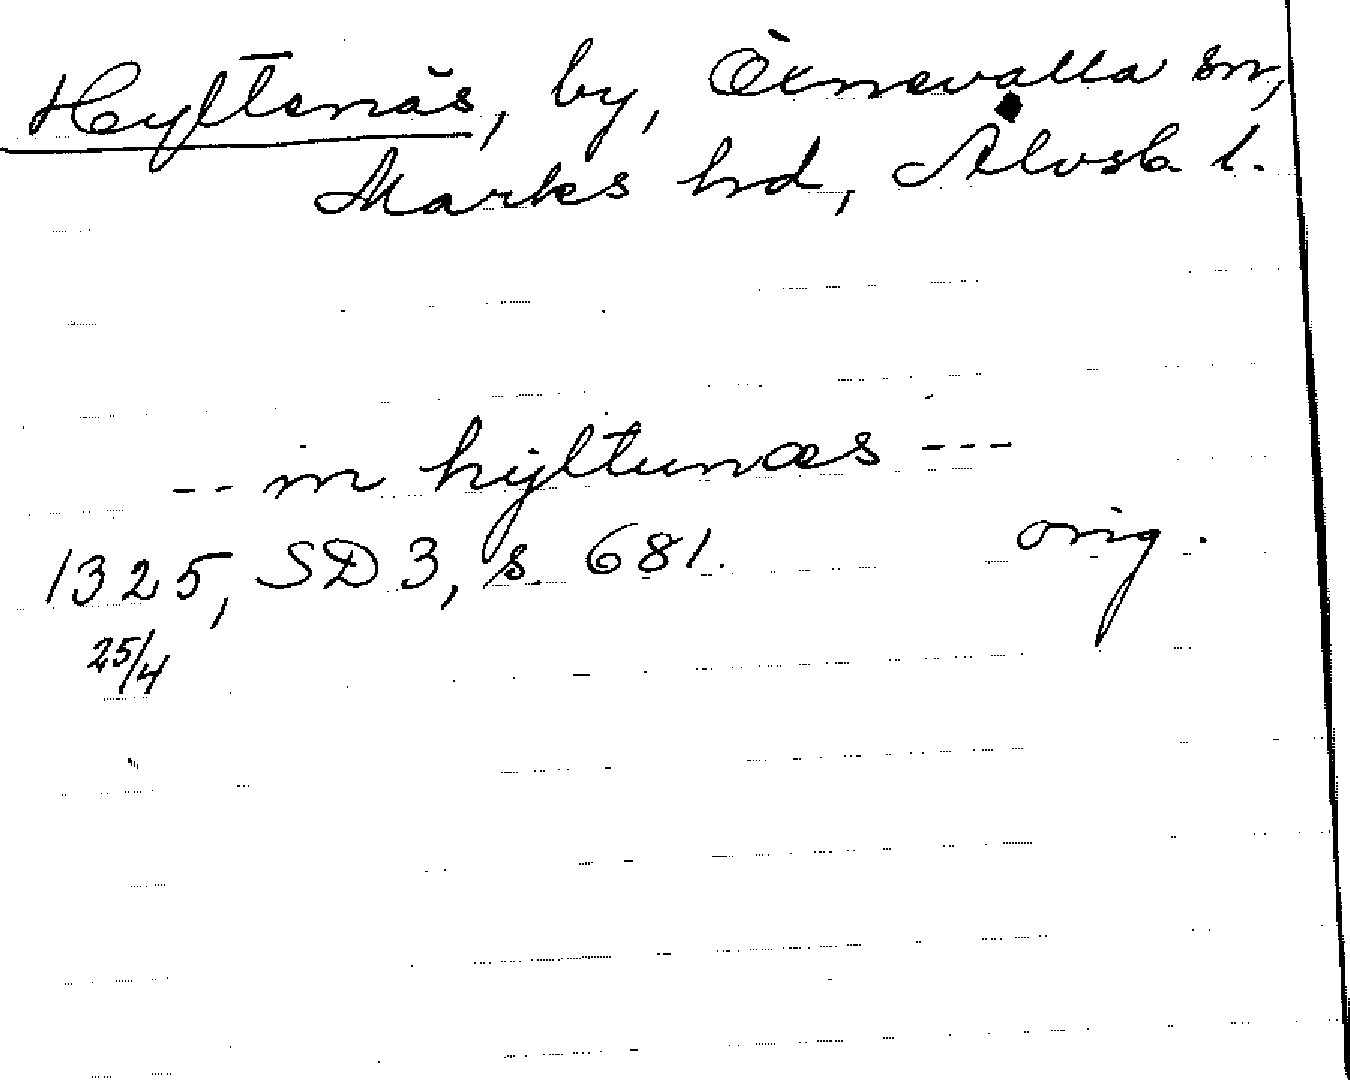 Hyltenäs, by, Öxnevalla sn,
Marks hd, Älvsb l.
-- in hyltunæs ---
1325, SD 3, s. 681. orig.
25/4